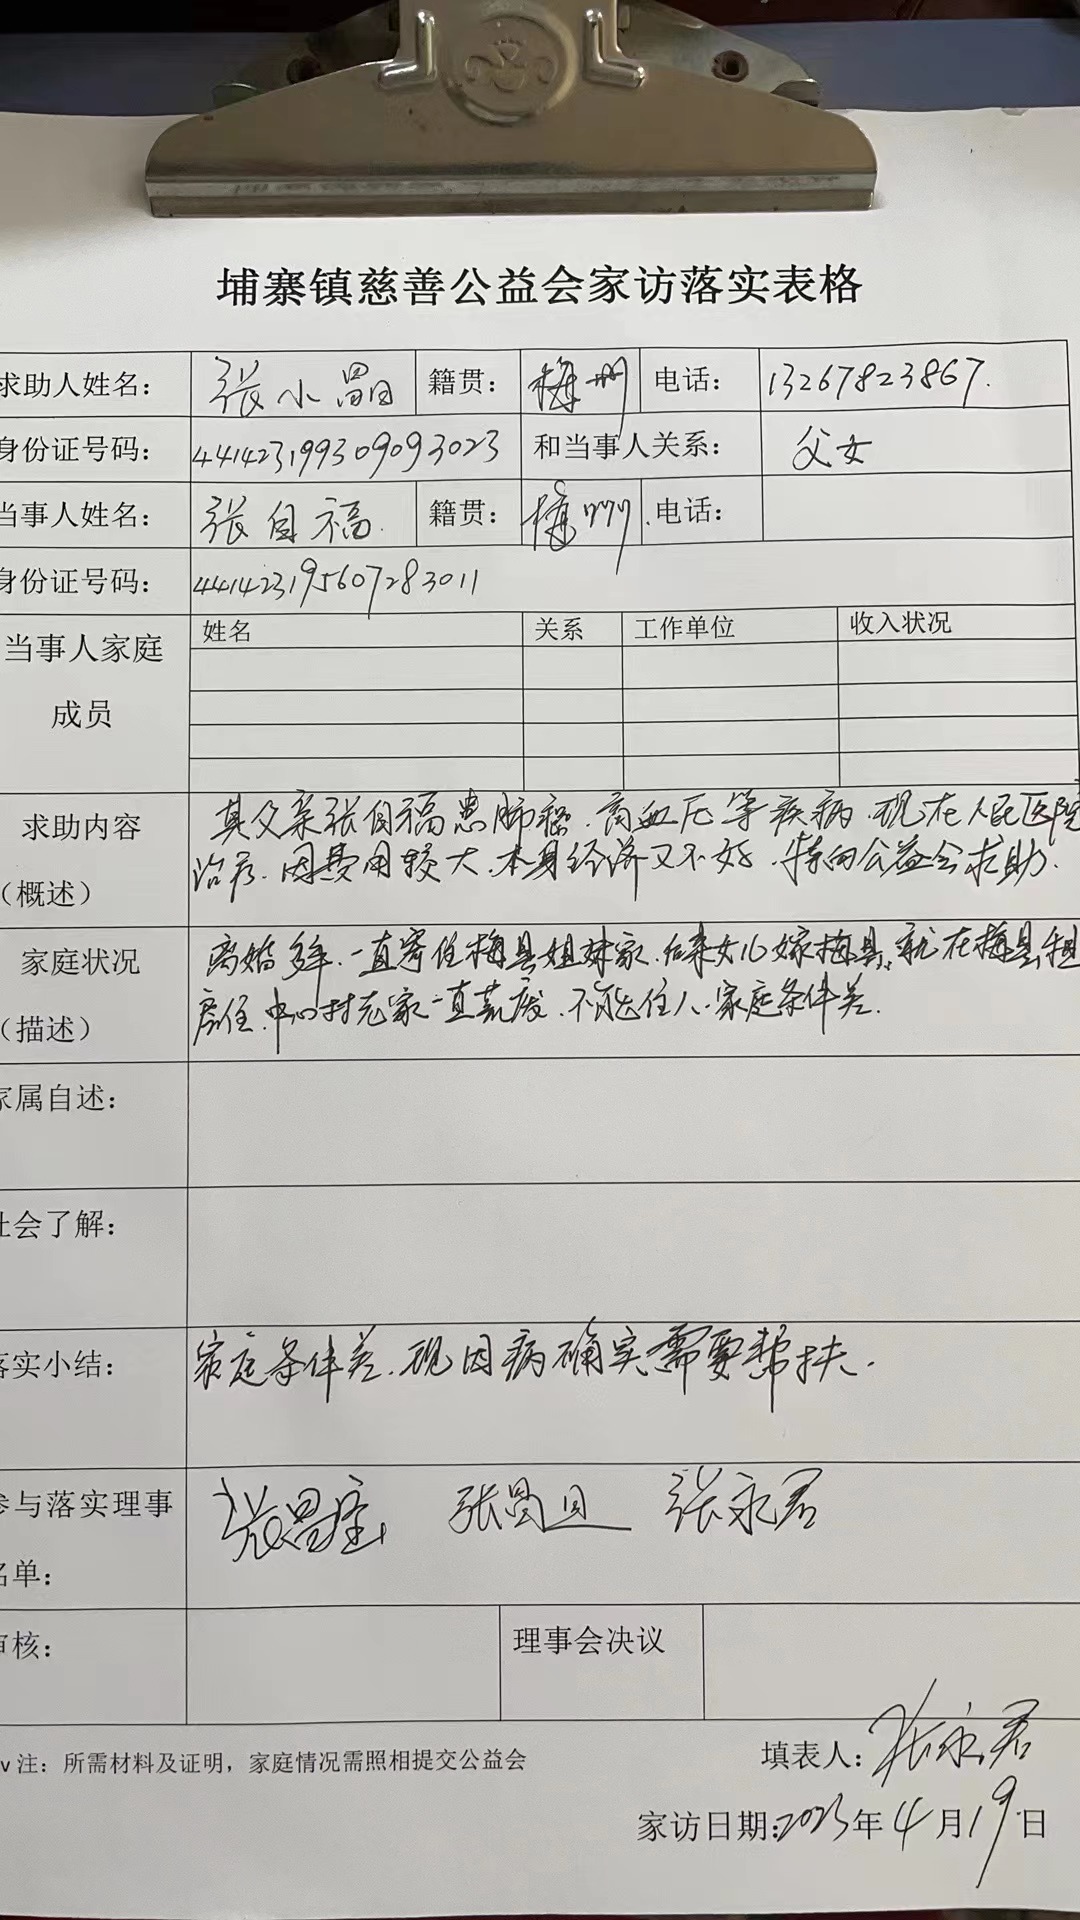 埔寨镇慈善公益会家访落实表格
求助人姓名： 张小晶 籍贯： 梅州 电话： 13267823867.
身份证号码： 441423199309093023 和当事人关系： 父女
当事人姓名： 张自福. 籍贯： 梅州. 电话：
身份证号码： 441423195607283011
当事人家庭成员 姓名 关系 工作单位 收入状况
求助内容（概述） 其父亲张自福患肺癌、高血压等疾病.现在人民医院
治疗.因费用较大.本身经济又不好.特向公益会求助.
家庭状况（描述） 离婚多年.一直寄住梅县姐妹家.后来女儿嫁梅县.就在梅县租
房住.中心村老家一直荒废.不能住人.家庭条件差.
家属自述：
社会了解：
落实小结： 家庭条件差.现因病确实需要帮扶.
参与落实理事名单： 张永君
审核： 理事会决议
v 注：所需材料及证明，家庭情况需照相提交公益会
填表人： 张永君
家访日期：2023年4月19日